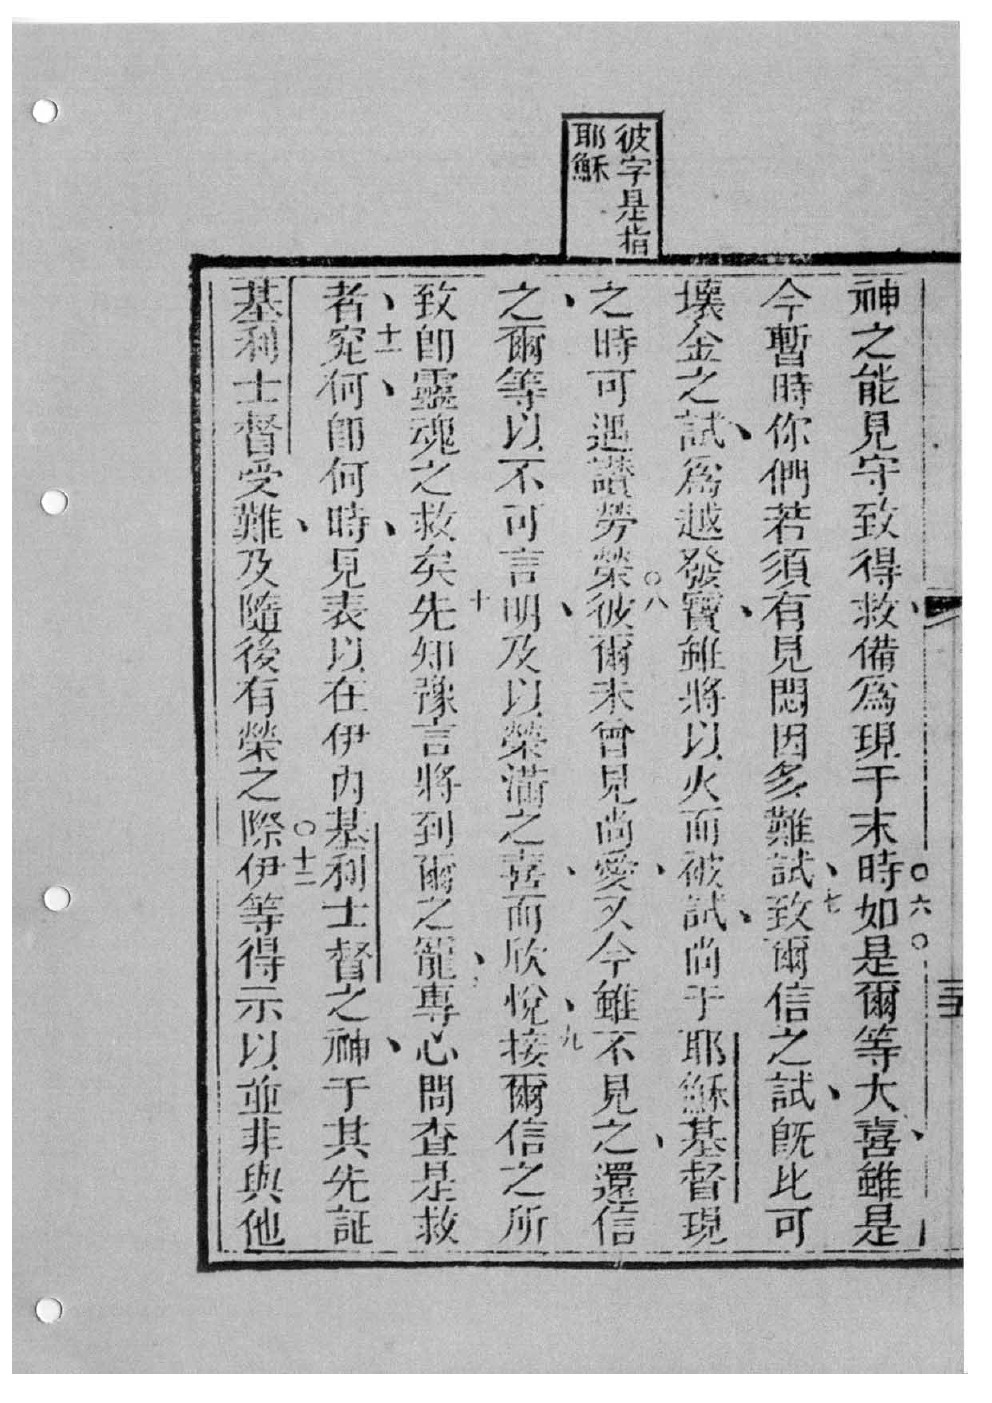 彼字是指
耶穌
神之能見守致得救備爲現于末時○六○如是爾等大喜雖是
今暫時你們若須有見悶因多難試七致爾信之試旣比可
壞金之試爲越發寶雖將以火而被試尚于耶穌基督現
之時可遇讚勞榮○八彼爾未曾見尚愛又今雖不見之還信
之爾等以不可言明及以榮滿之喜而欣悅九接爾信之所
致卽靈魂之救矣十先知豫言將到爾之寵專心問查是救
者十一究何卽何時見表以在伊內基利士督之神于其先証
基利士督受難及隨後有榮之際○十二伊等得示以並非與他